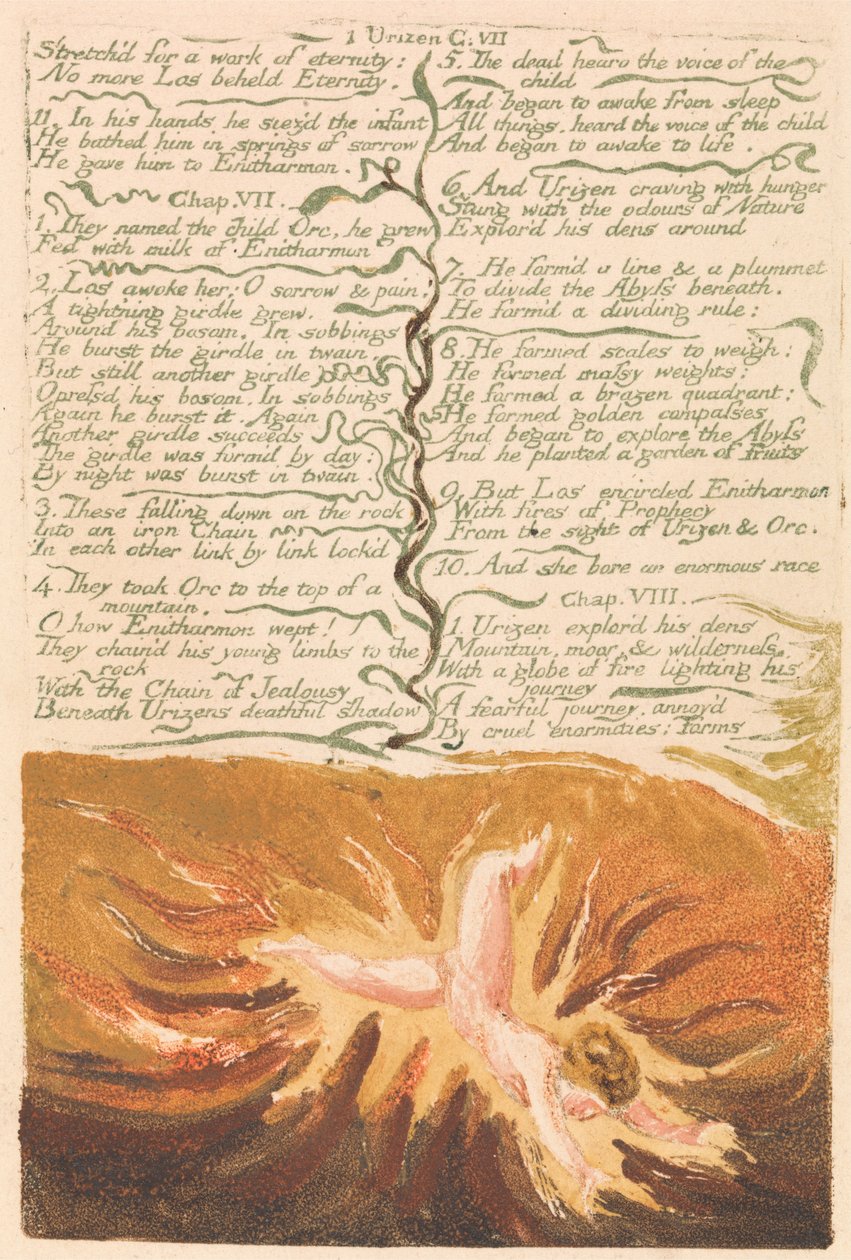 1 Urizen C: VII
Stretch'd for a work of eternity:
No more Los beheld Eternity.
11. In his hands he siez'd the infant
He bathed him in springs of sorrow
He gave him to Enitharmon.
Chap. VII.
1. They named the child Orc, he grew
Fed with milk of Enitharmon
2. Los awoke her; O sorrow & pain.
A tightning girdle grew.
Around his bosom. In sobbings
He burst the girdle in twain.
But still another girdle
Opress'd his bosom. In sobbings
Again he burst it. Again
Another girdle succeeds
The girdle was form'd by day;
By night was burst in twain.
3. These falling down on the rock
Into an iron Chain
In each other link by link lock'd
4. They took Orc to the top of a
mountain.
O how Enitharmon wept!
They chain'd his young limbs to the
rock
With the Chain of Jealousy
Beneath Urizens deathful shadow
5. The dead heard the voice of the
child
And began to awake from sleep
All things. heard the voice of the child
And began to awake to life.
6. And Urizen craving with hunger
Stung with the odours of Nature
Explor'd his dens around
7. He form'd a line & a plummet
To divide the Abyss beneath.
He form'd a dividing rule:
8. He formed scales to weigh;
He formed massy weights;
He formed a brazen quadrant;
He formed golden compasses
And began to explore the Abyss
And he planted a garden of fruits
9. But Los encircled Enitharmon
With fires of Prophecy
From the sight of Urizen & Orc.
10. And she bore an enormous race
Chap. VIII.
1. Urizen explor'd his dens
Mountain, moor, & wilderness,
With a globe of fire lighting his
journey
A fearful journey, annoy'd
By cruel enormities: forms